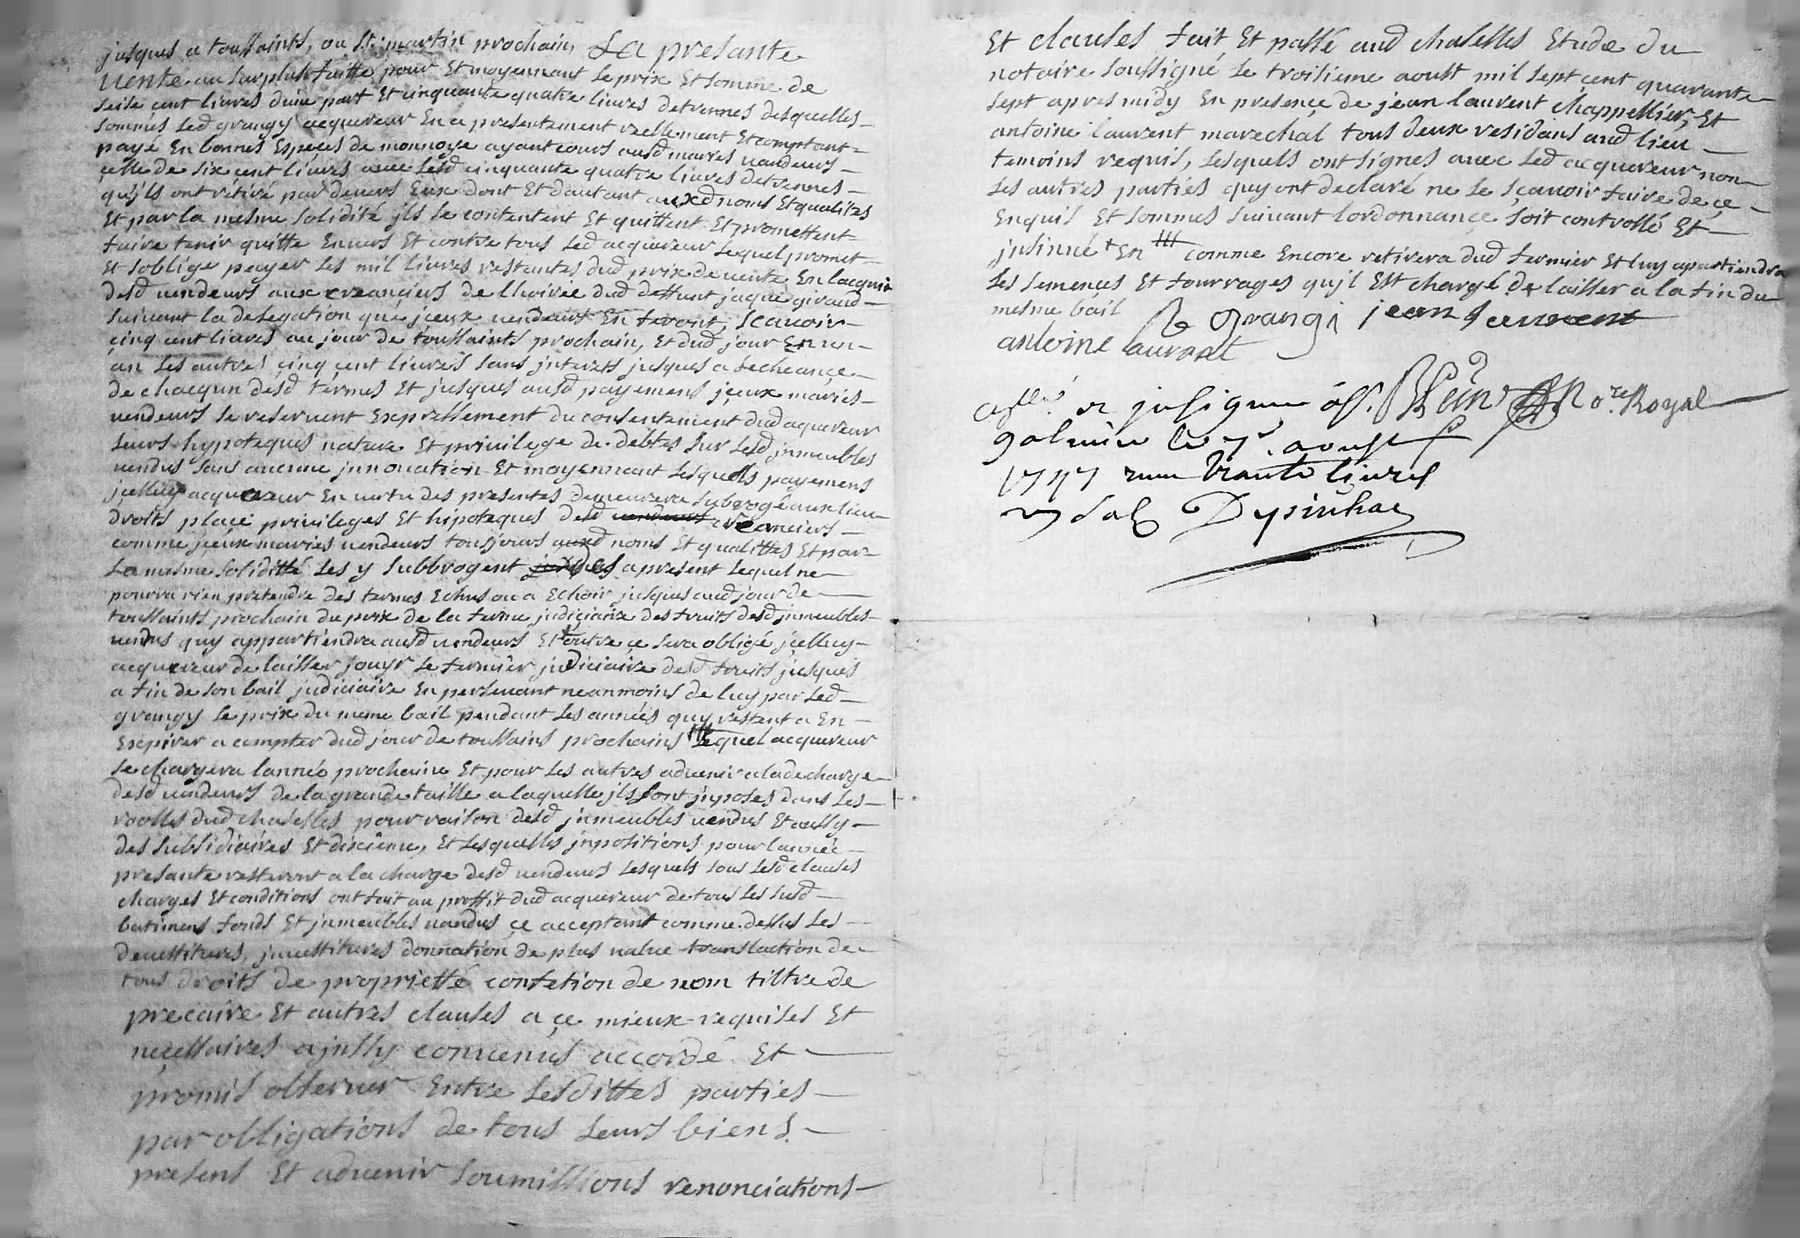 jusques a toussaints, ou St. martin prochain, La presante
vente au surplus faitte pour Et moyennant le prix Et somme de
seise cent livres d'une part Et cinquante quatre livres detrennes desquelles
sommes led grangy acquereur En a presentement reellement Et comptant
payé En bonnes Especes de monnoye ayant cours ausd mariés vendeurs
celle de six cent livres avec lesd cinquante quatre livres detrennes
qu'ils ont rétiré par devers Eux dont Et dautant auxd noms Et qualités
Et par la mesme solidité jls se contentent Et quittent Et promettent
faire tenir quitte Envers Et contre tous led acquereur lequel promet
Et soblige payer les mil livres restantes dud prix de vente En lacquit
desd vendeurs aux creanciers de lhoirie dud deffunt jaque giraud
suivant la delegation que jceux vendeurs En feront, scavoir
cinq cent livres au jour de toussaints prochain, Et dud jour En un
an les autres cinq cent livres sans interets jusques a lecheance
de chacqun desd termes Et jusques ausd payemens jceux mariés
vendeurs se reservent Expressement du consentement dud acquereur
leurs hypoteques nature Et privilege de debtes sur lesd jmmeubles
vendus sans aucune jnnovation Et moyennant lesquels payemens
jcelluy acquereur En vertu des presentes demeurera subrogé aux lieu
droits place privileges Et hipoteques desd vendeurs creanciers
comme jceux mariés vendeurs toujours auxd noms Et qualittés Et par
la mesme soliditté les y subbrogent des apresent lequel ne
pourra rien pretendre des termes Echus ou a Echoir jusques aud jour de
toussaints prochain du prix de la ferme judiciaire des fruits desd jmmeubles
vendus quy appartiendra ausd vendeurs Et outre ce sera obligé jcelluy
acquereur de laisser jouyr le fermier judiciaire desd fruits jusques
a fin de son bail judiciaire En percevant neanmoins de luy par led
grangy le prix du meme bail pendant les années quy restent a En
Expirer a compter dud jour de toussains prochains lequel acquereur
se chargera lannée prochaine Et pour les autres advenir a la decharge
desd vendeurs de la grande taille a laquelle jls sont jmposes dans les
roolles dud chaselles pour raison desd jmmeubles vendus Et aussy
des subsidiaires Et dixieme, Et lesquelles jmpositions pour lannée
presante resteront a la charge desd vendeurs lesquels sous lesd clauses
charges Et conditions ont fait au proffit dud acquereur de tous les susd
batimens fonds Et jmmeubles vendus ce acceptant comme dessus les
devestitures, jnvestitures donnation de plus value translaction de
tous droits de proprietté confetion de nom tiltre de
precaire Et autres clauses a ce mieux requises Et
necessaires ajnsy convenus accordé Et
promis observer Entre lesdittes parties
par obligations de tous leurs biens
presens Et advenir soumissions renonciations
Et clauses fait Et passé aud chaselles Etude du
notaire soussigné le troisieme aoust mil sept cent quarante
sept apres midy En presence de jean laurent chappellier, Et
antoine laurent marechal tous deux residans aud lieu
temoins requis, lesquels ont signes avec led acquereur non
les autres parties quy ont declaré ne le sçavoir faire de ce
Enquis Et sommes suivant lordonnance soit controllé Et
jnsinué + En comme Encore retirera dud fermier Et luy apartiendra
les semences Et fourrages qu'jl Est chargé de laisser a la fin du
mesme bail grangi jean laurent
antoine laurant
No.re Royal
galmier le 7e aoust
1747 trante livres